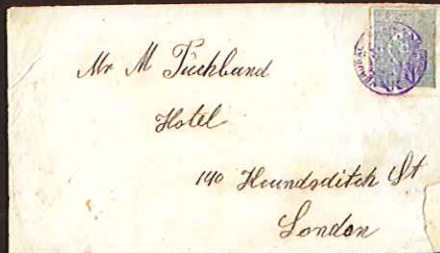 Mr M Tuchband
Hotel
140 Houndsditch St
London